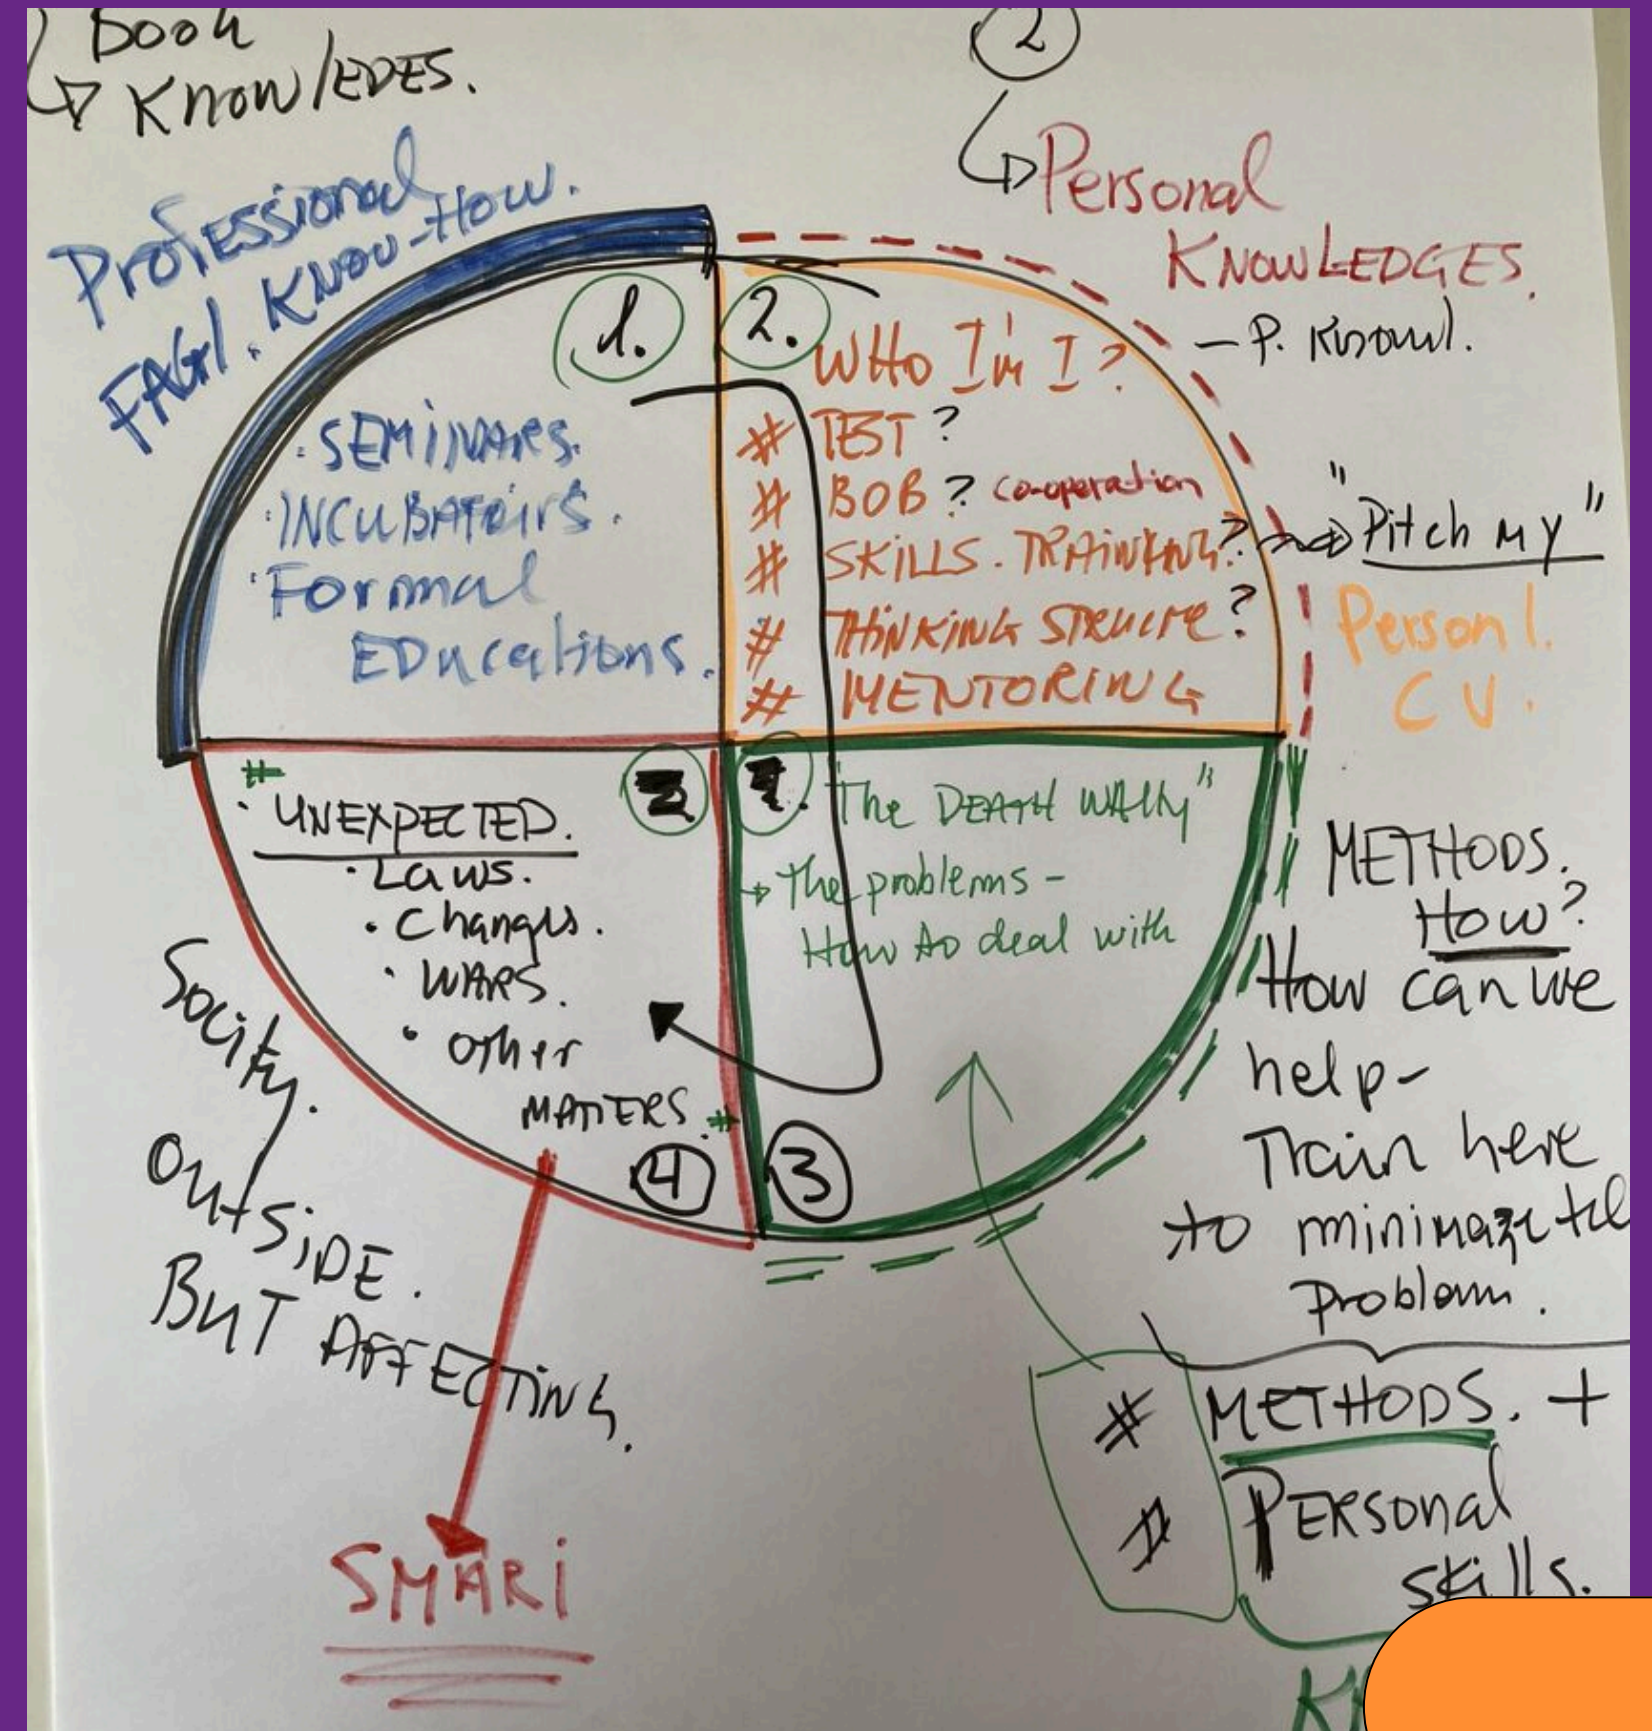 Book
KNOWlEDES.
2
Personal
KNOWLEDGES.
- P. Knowl.
Professional
FAGl. KNOW-HOW.
1.
SEMINARS.
INCUBATOIRS.
Formal
EDucations.
2.
WHO I'm I?
# TEST?
# BOB? co-operation
# SKILLS. TRAINING?
# THINKING STRUCTRE?
# MENTORING
"Pitch MY"
Personl.
CV.
#
· UNEXPECTED.
· Laws.
· Changes.
· WARS.
· other
MATTERS. #
4
"The DEATH WAlly"
The problems -
How to deal with
3
METHODS.
How?
How can we
help-
Train here
to minimaze the
problem.
# METHODS. +
# PERSonal
skills.
Socity.
OUTSIDE.
BUT AFFECTING.
SMARI